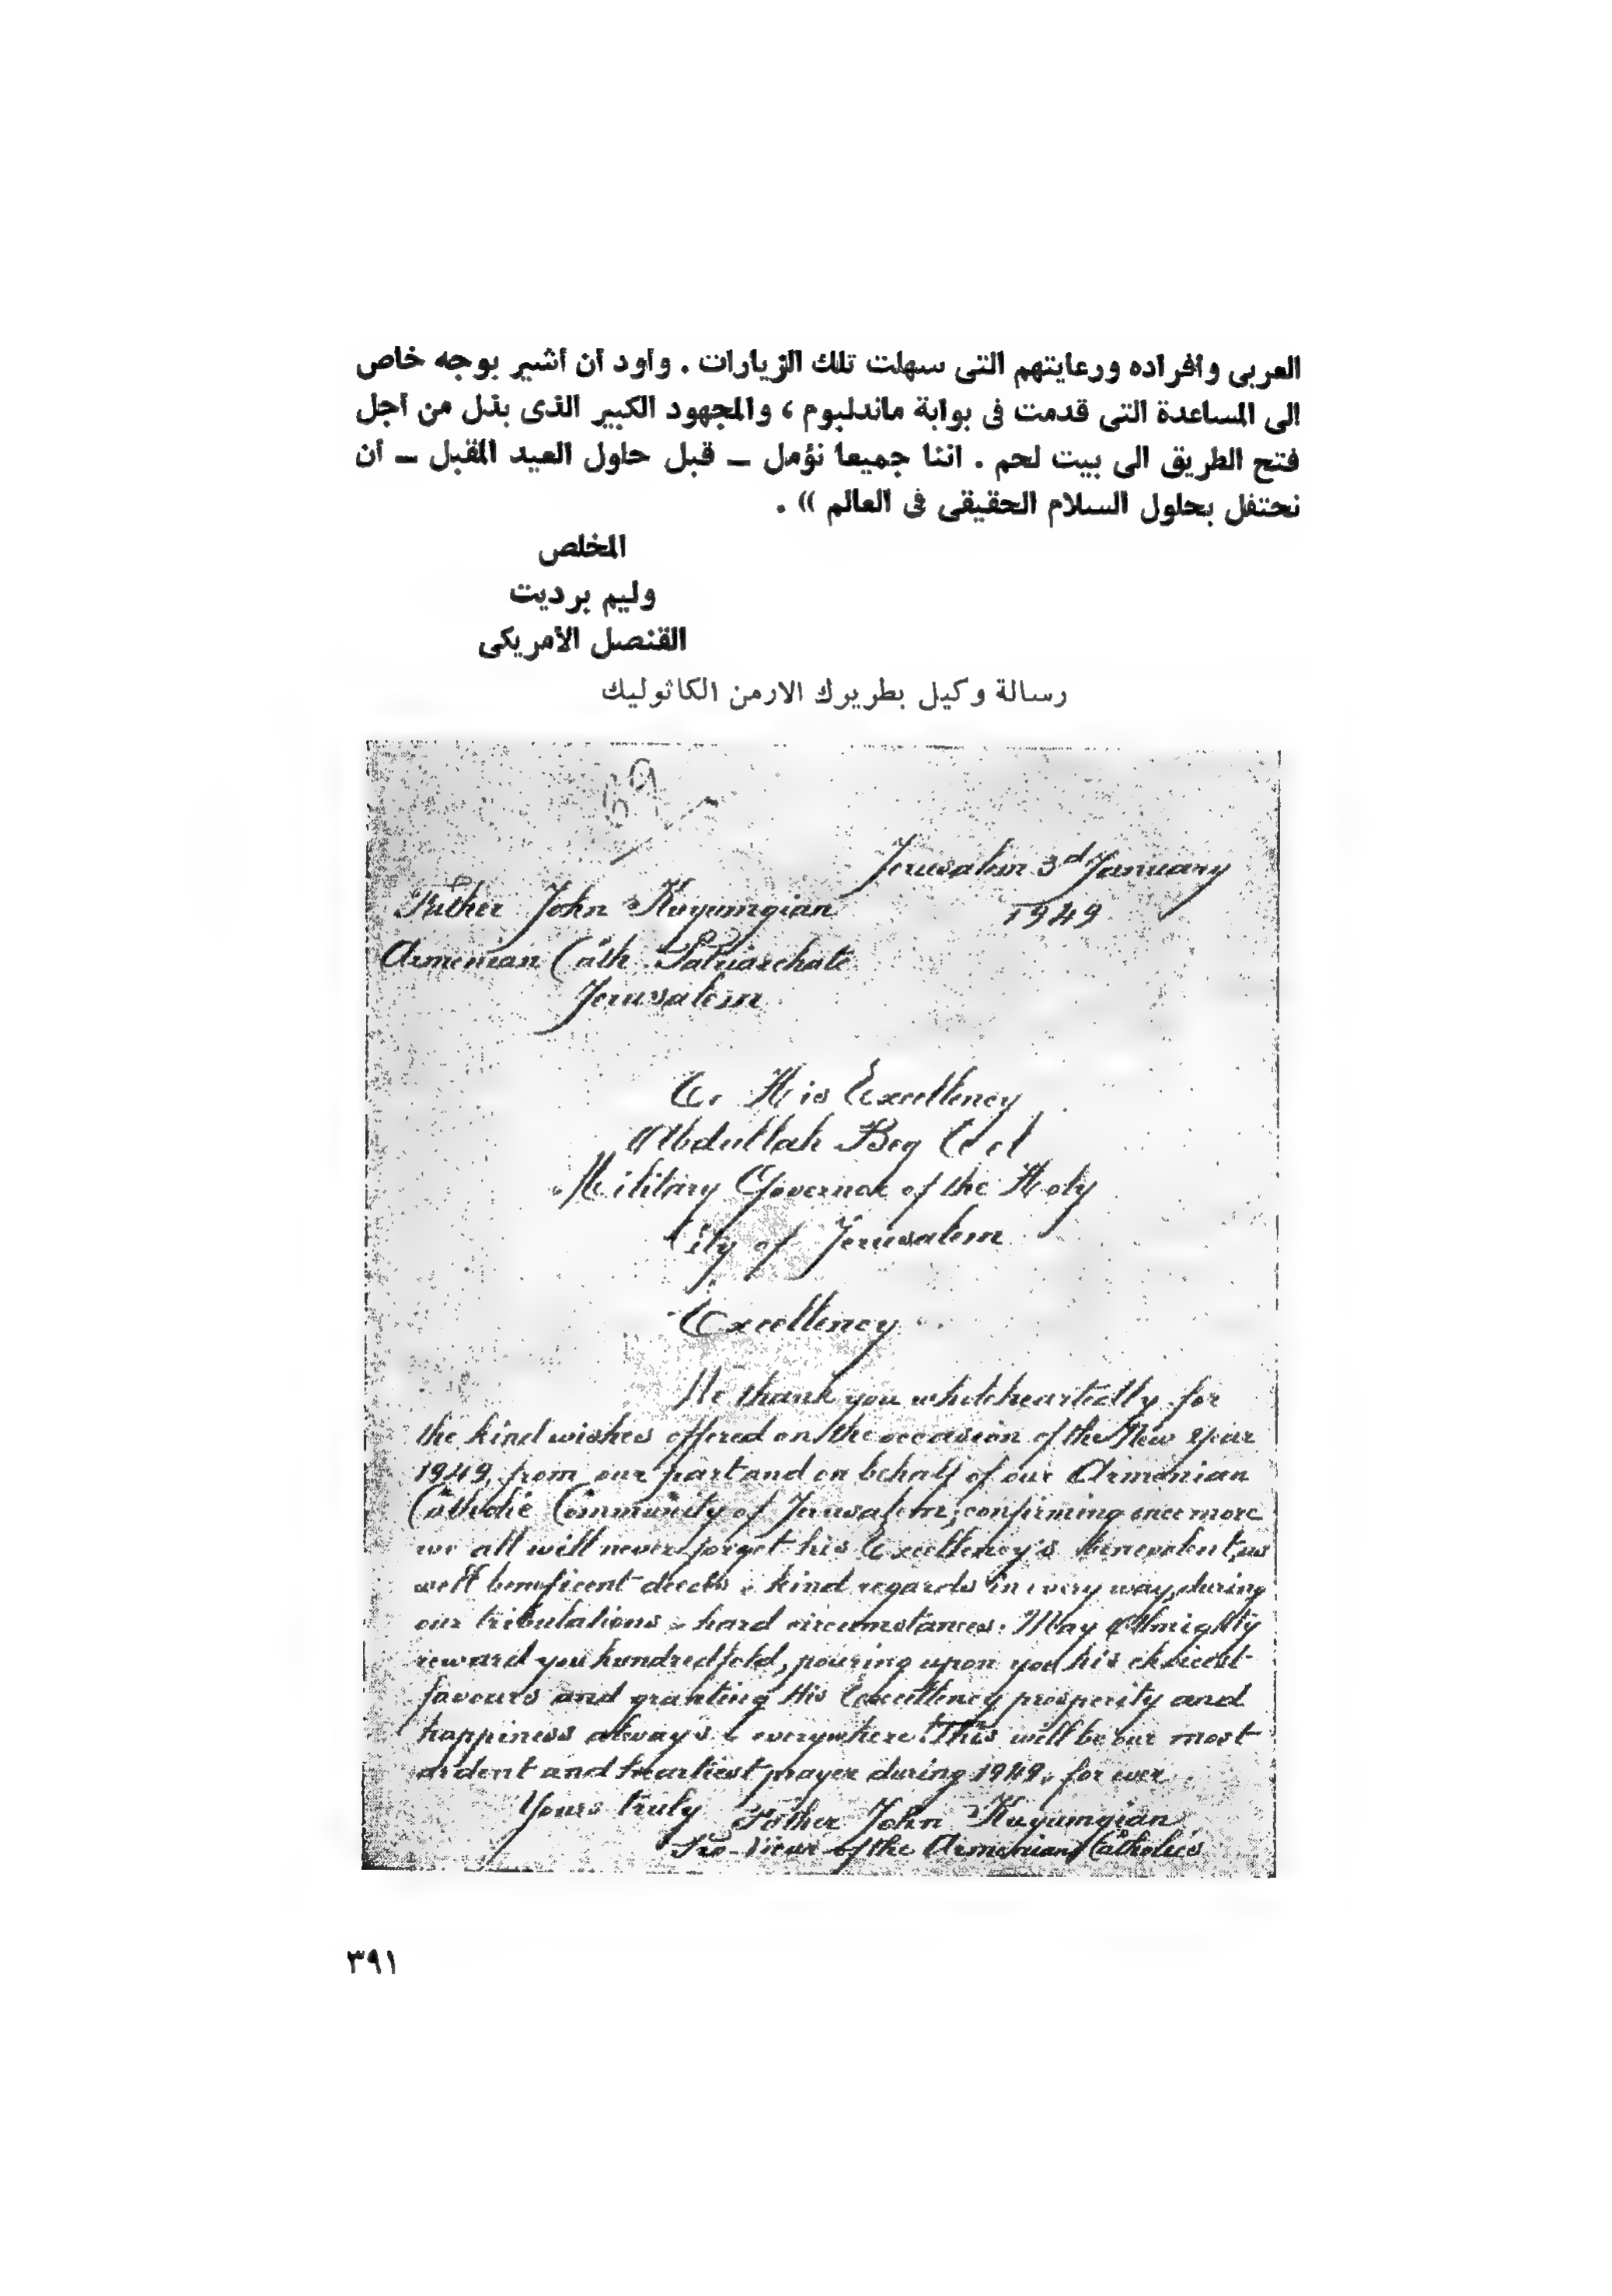 العربى وأفراده ورعايتهم التى سهلت تلك الزيارات . وأود أن أشير بوجه خاص
الى المساعدة التى قدمت فى بوابة ماندلبوم ، والمجهود الكبير الذى بذل من أجل
فتح الطريق الى بيت لحم . اننا جميعا نؤمل — قبل حلول العيد المقبل — أن
نحتفل بحلول السلام الحقيقى فى العالم )) .
المخلص
وليم برديت
القنصل الأمريكى
رسالة وكيل بطريرك الارمن الكاثوليك
Jerusalem 3rd January
1949
Father John Kuyumgian
Armenian Cath. Patriarchate
Jerusalem
His Excellency
Abdullah Bey
Military Governor of the Holy
City of Jerusalem
Excellency
We thank you wholeheartedly for
the kind wishes offered on the occasion of the New Year
1949, from our part and on behalf of our Armenian
Catholic Community of Jerusalem, confirming once more
we all will never forget his Excellency's benevolent, as
well beneficent deeds & kind regards in every way, during
our tribulations & hard circumstances. May Almighty
reward you hundredfold, pouring upon you his choicest
favours and granting His Excellency prosperity and
happiness always & everywhere. This will be our most
ardent and heartiest prayer during 1949, for ever
Yours truly Father John Kuyumgian
Pro-Vicar of the Armenian Catholics
٣٩١